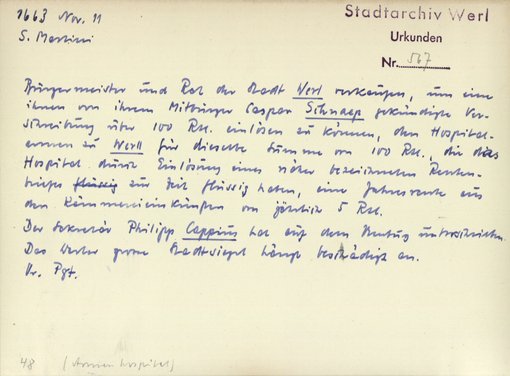 1663 Nov. 11
S. Martini
Stadtarchiv Werl
Urkunden
Nr. 567
Bürgermeister und Rat der Stadt Werl verkaufen, um eine
ihnen von ihrem Mitbürger Caspar Schnaep gekündigte Ver-
schreibung über 100 Rtl. einlösen zu können, dem Hospital-
armen zu Werll für dieselbe Summe von 100 Rtl., die das
Hospital durch Einlösung eines näher bezeichneten Renten-
briefs flüssig zur Zeit flüssig haben, eine Jahresrente aus
den Kämmereieinkünften von jährlich 5 Rtl.
Der Sekretär Philipp Cappius hat auf dem unterschrieben.
Das Werler grosse Stadtsiegel hängt beschädigt an.
Or. Pgt.
48 (Armen hospital)